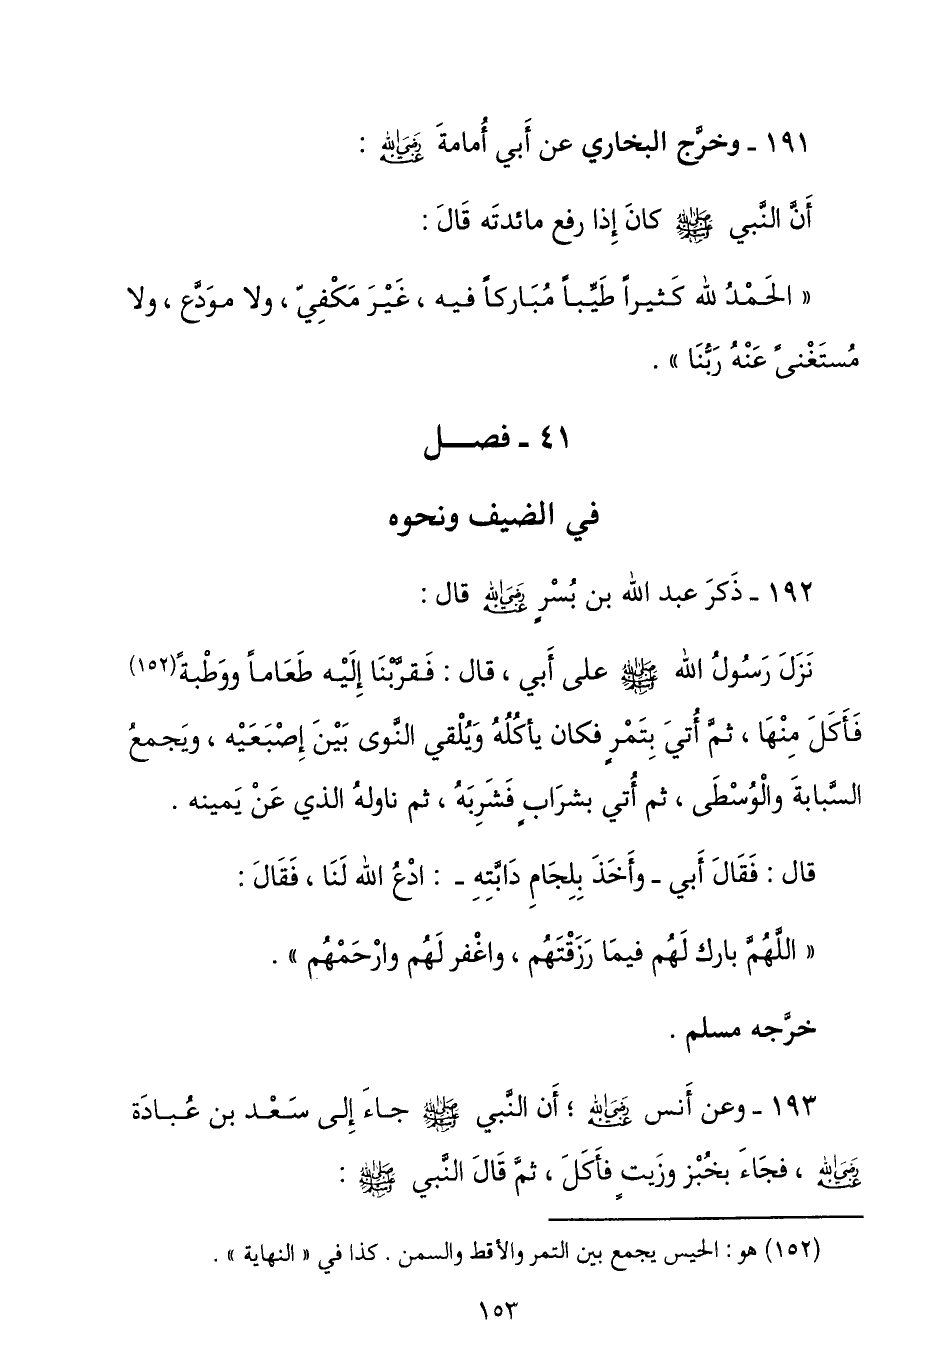 ١٩١ ـ وخرَّج البخاري عن أَبي أُمامةَ رضي الله عنه :
أَنَّ النَّبي ﷺ كانَ إِذا رفع مائدتَه قَالَ :
« الحَمْدُ لله كَثيراً طَيِّباً مُبَاركاً فيه ، غَيْرَ مَكْفِيّ ، ولا مودَّع ، ولا
مُستَغْنىً عَنْهُ رَبُّنَا » .
٤١ ـ فصـــل
في الضيف ونحوه
١٩٢ ـ ذَكرَ عبد الله بن بُسْرٍ رضي الله عنه قال :
نَزَلَ رَسُولُ الله ﷺ على أَبي ، قال : فَقرَّبْنَا إِلَيْه طَعَاماً ووَطْبةً(١٥٢)
فَأَكَلَ مِنْهَا ، ثمَّ أُتيَ بِتَمْرٍ فكان يأكُلُهُ وَيُلْقي النَّوى بَيْنَ إِصْبَعَيْه ، ويَجمعُ
السَّبابةَ والْوُسْطَى ، ثم أُتي بشرَابٍ فَشَرِبَهُ ، ثم ناولهُ الذي عَنْ يَمينه .
قال : فَقَالَ أَبي ـ وأَخَذَ بِلِجَامِ دَابَّتِهِ ـ : ادْعُ الله لَنَا ، فَقَالَ :
« اللَّهُمَّ بارك لَهُم فيمَا رَزَقْتَهُم ، واغْفر لَهُم وارْحَمْهُم » .
خرَّجه مسلم .
١٩٣ ـ وعن أَنس رضي الله عنه ؛ أَن النَّبي ﷺ جاءَ إِلى سَعْد بن عُبادَة
رضي الله عنه ، فجَاءَ بخُبْز وزَيتٍ فأَكَلَ ، ثمَّ قَالَ النَّبي ﷺ :
(١٥٢) هو : الحيس يجمع بين التمر والأقط والسمن . كذا في « النهاية » .
١٥٣